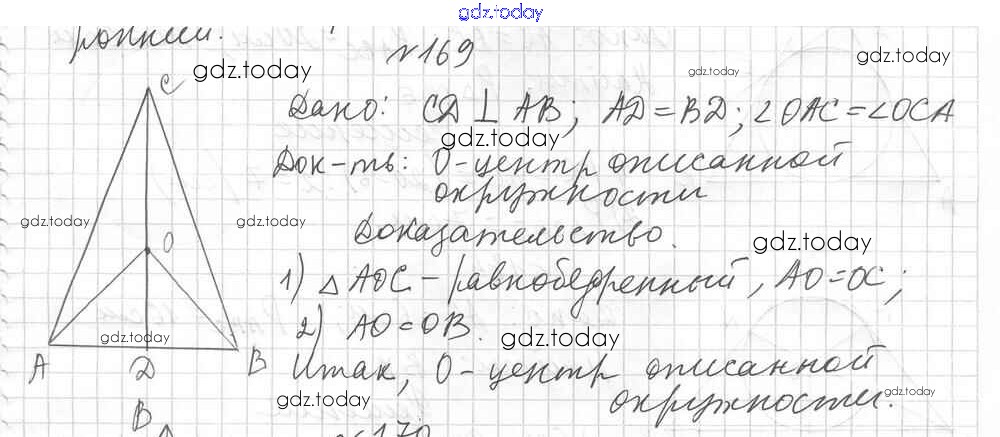 gdz.today
№169
gdz.today gdz.today gdz.today
C
Дано: CD ⊥ AB; AD = BD; ∠OAC = ∠OCA
gdz.today
Док-ть: O-центр описанной
окружности
gdz.today gdz.today
Доказательство.
gdz.today
O
1) △ AOC - равнобедренный, AO = OC;
2) AO = OB.
gdz.today gdz.today
A D B
Итак, O-центр описанной
окружности.
gdz.today gdz.today
B
№170